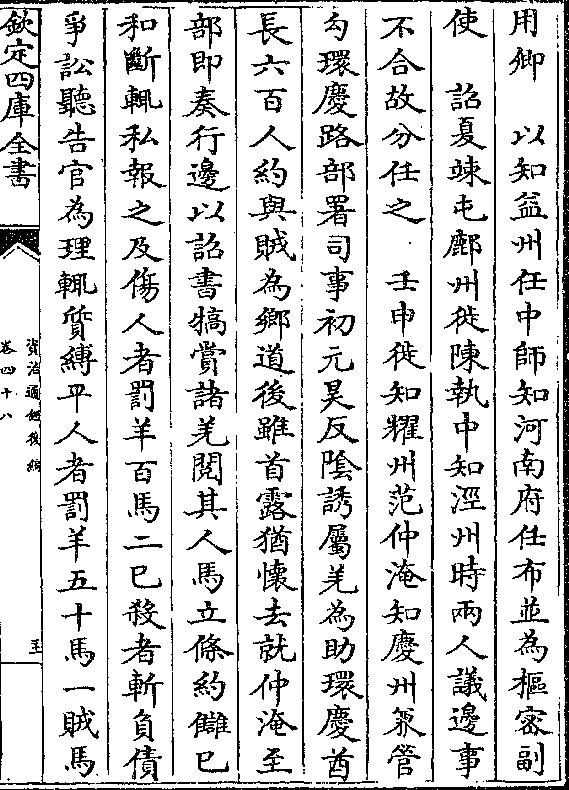 用卿　以知益州任中師知河南府任布並為樞密副
使　詔夏竦屯鄜州徙陳執中知涇州時兩人議邊事
不合故分任之　壬申徙知耀州范仲淹知慶州兼管
勾環慶路部署司事初元昊反陰誘屬羌為助環慶酋
長六百人約與賊為鄉道後雖首露猶懷去就仲淹至
部即奏行邊以詔書犒賞諸羌閱其人馬立條約讎已
和斷輒私報之及傷人者罰羊百馬二已殺者斬負債
爭訟聽告官為理輒質縛平人者罰羊五十馬一賊馬
欽定四庫全書
資治通鑑後編
卷四十八